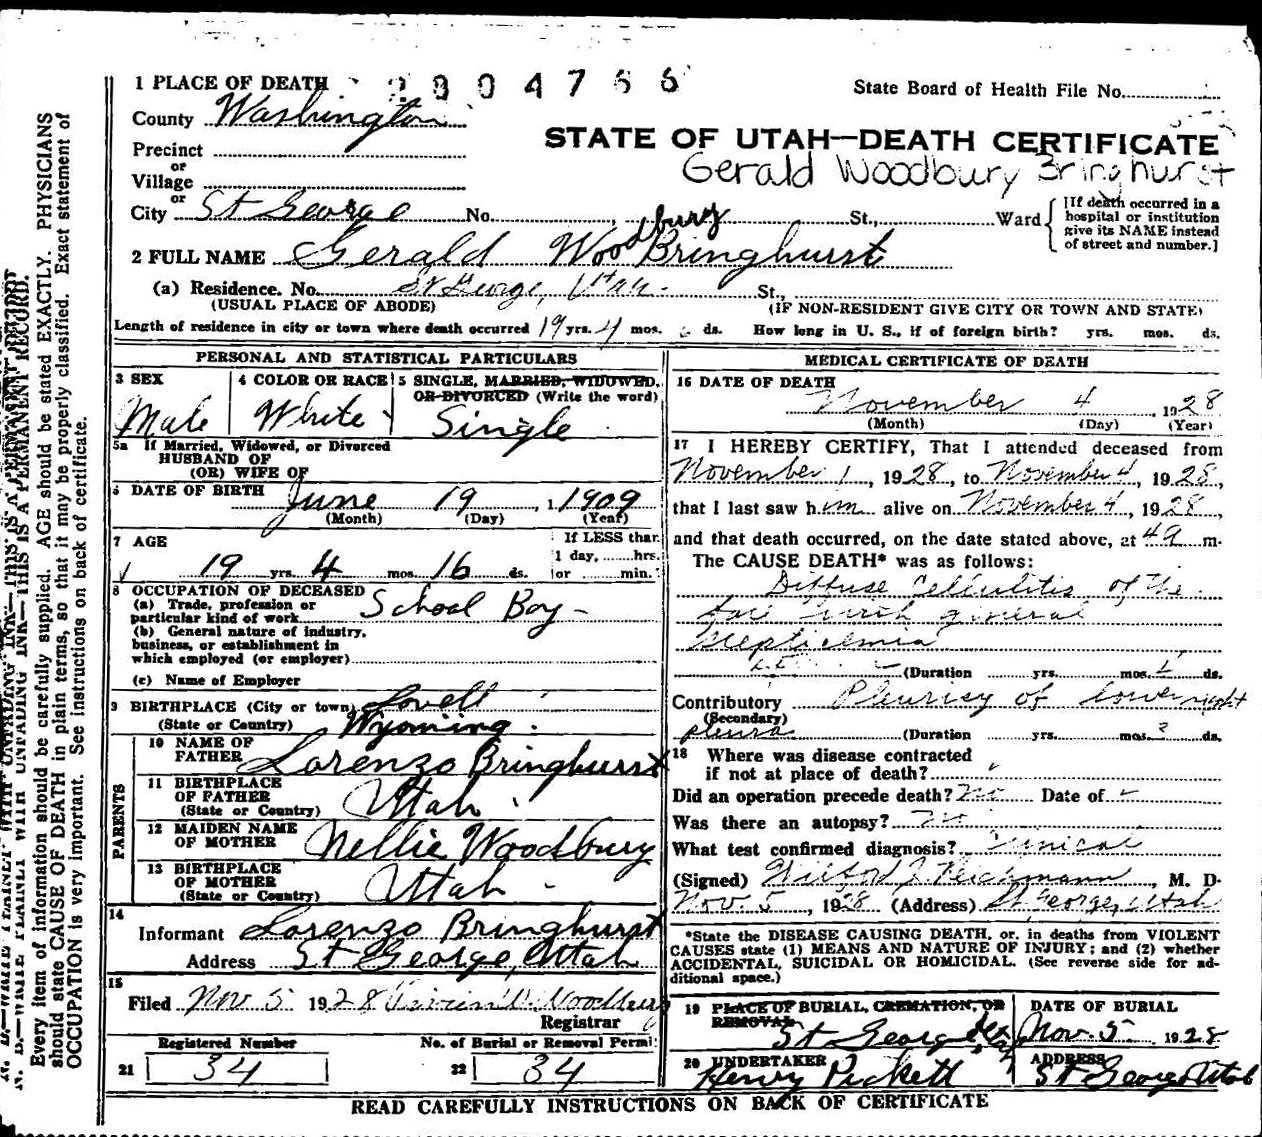 1 PLACE OF DEATH 2804766 State Board of Health File No.
County Washington
STATE OF UTAH—DEATH CERTIFICATE
Precinct
Gerald Woodbury Bringhurst
or
Village
or
City St George No. St., Ward
[If death occurred in a
hospital or institution
give its NAME instead
of street and number.]
2 FULL NAME Gerald Woodbury Bringhurst
(a) Residence. No. St George, Utah. St.,
(USUAL PLACE OF ABODE) (IF NON-RESIDENT GIVE CITY OR TOWN AND STATE)
Length of residence in city or town where death occurred 19 yrs. 4 mos. ds. How long in U. S., if of foreign birth? yrs. mos. ds.
PERSONAL AND STATISTICAL PARTICULARS
3 SEX
Male
4 COLOR OR RACE
White
5 SINGLE, MARRIED, WIDOWED,
OR DIVORCED (Write the word)
Single
5a If Married, Widowed, or Divorced
HUSBAND OF
(OR) WIFE OF
6 DATE OF BIRTH June 19, 1909
(Month) (Day) (Year)
7 AGE
19 yrs. 4 mos. 16 ds.
If LESS than
1 day, hrs.
or min.
8 OCCUPATION OF DECEASED
(a) Trade, profession or
particular kind of work School Boy
(b) General nature of industry,
business, or establishment in
which employed (or employer)
(c) Name of Employer
9 BIRTHPLACE (City or town) Lovell
(State or Country) Wyoming
PARENTS
10 NAME OF
FATHER Lorenzo Bringhurst
11 BIRTHPLACE
OF FATHER
(State or Country) Utah
12 MAIDEN NAME
OF MOTHER Nellie Woodbury
13 BIRTHPLACE
OF MOTHER
(State or Country) Utah
14
Informant Lorenzo Bringhurst
Address St George, Utah
15
Filed Nov. 5 1928 Woodbury
Registrar
Registered Number No. of Burial or Removal Permit
21 34 22 34
MEDICAL CERTIFICATE OF DEATH
16 DATE OF DEATH
November 4, 1928
(Month) (Day) (Year)
17 I HEREBY CERTIFY, That I attended deceased from
November 1, 1928, to November 4, 1928,
that I last saw him alive on November 4, 1928,
and that death occurred, on the date stated above, at m.
The CAUSE DEATH* was as follows:
Diffuse Cellulitis of the
face with general
septicemia
(Duration yrs. mos. ds.
Contributory Pleurisy of lower right
(Secondary)
pleura (Duration yrs. mos. ds.
18 Where was disease contracted
if not at place of death?
Did an operation precede death? No Date of
Was there an autopsy? No
What test confirmed diagnosis? Clinical
(Signed) M. D.
Nov. 5, 1928 (Address) St George, Utah
*State the DISEASE CAUSING DEATH, or, in deaths from VIOLENT
CAUSES state (1) MEANS AND NATURE OF INJURY; and (2) whether
ACCIDENTAL, SUICIDAL OR HOMICIDAL. (See reverse side for ad-
ditional space.)
19 PLACE OF BURIAL, CREMATION, OR
REMOVAL
St George
DATE OF BURIAL
Nov. 5 1928
20 UNDERTAKER
Henry Pickett
ADDRESS
St George Utah
READ CAREFULLY INSTRUCTIONS ON BACK OF CERTIFICATE
N. B.—WRITE PLAINLY WITH UNFADING INK—THIS IS A PERMANENT RECORD.
Every item of information should be carefully supplied. AGE should be stated EXACTLY. PHYSICIANS
should state CAUSE OF DEATH in plain terms, so that it may be properly classified. Exact statement of
OCCUPATION is very important. See instructions on back of certificate.